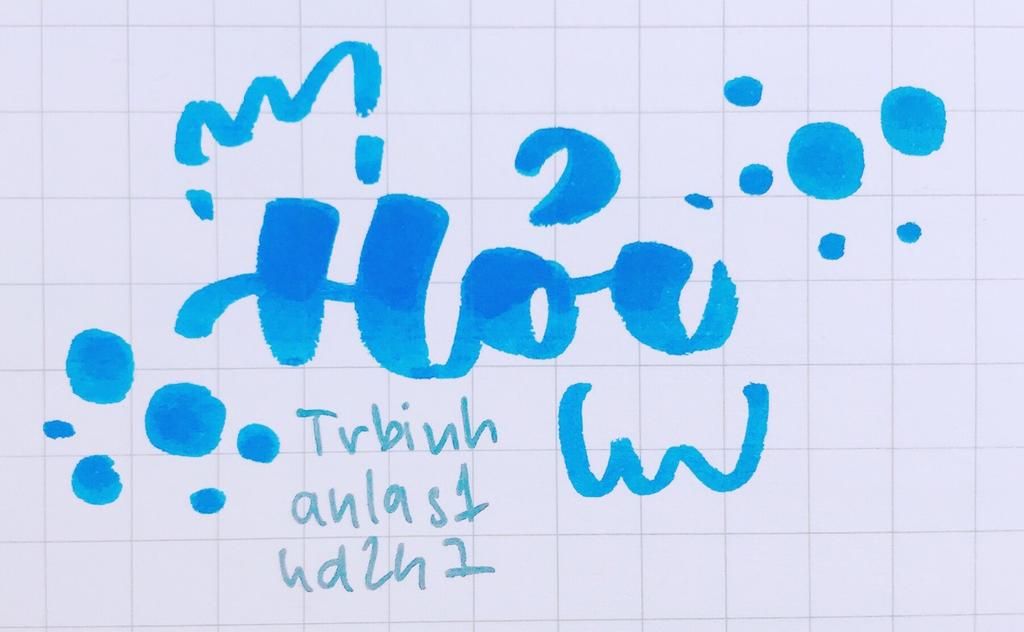 Hỏi
Trbinh
anlas1
hd2h1